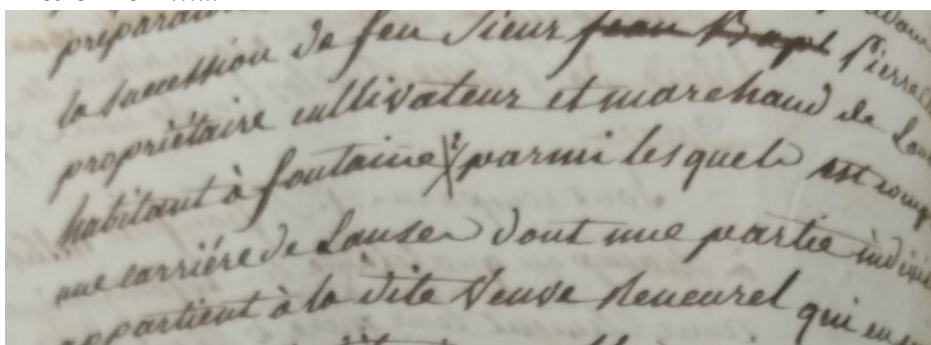 la succession de feu Sieur Jean Bapt Pierre
propriétaire cultivateur et marchand de
habitant à fontaine parmi lesquels est comp
une carrière de Lauses dont une partie indivi
appartient à la dite Veuve qui en